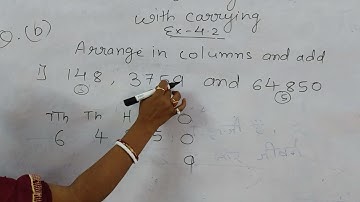 with carrying
Q. (b) Ex-4.2
Arrange in columns and add
1) 148, 3759 and 64850
3 5
TTh Th H O
6 4 5 0
9